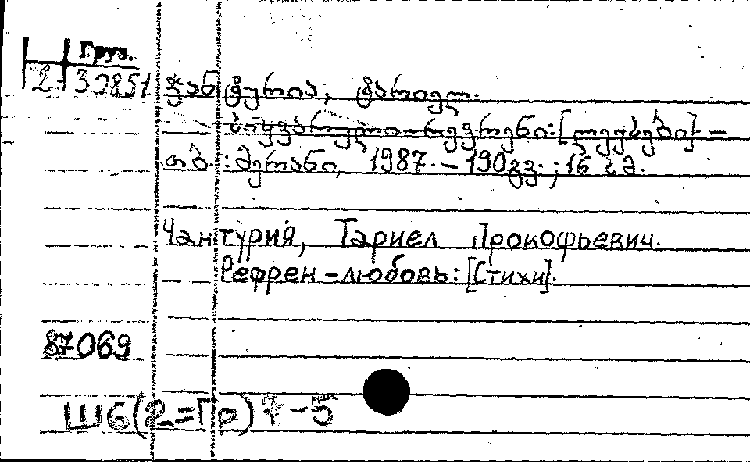 Груз.
2-30851 ჭანტურია, ტარიელ.
სიყვარული-რეფრენი: [ლექსები] –
თბ.: მერანი, 1987. – 190გვ.; 16 სმ.
Чантурия, Тариел Прокофьевич.
Рефрен – любовь: [Стихи].
87069
Ш6(2=Гр)7-5